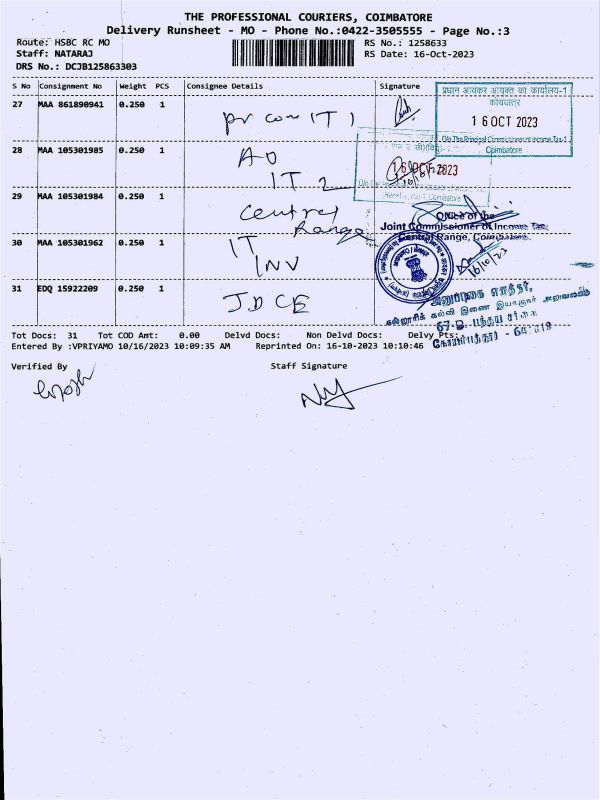 THE PROFESSIONAL COURIERS, COIMBATORE
Delivery Runsheet - MO - Phone No.:0422-3505555 - Page No.:3
Route: HSBC RC MO
RS No.: 1258633
Staff: NATARAJ
RS Date: 16-Oct-2023
DRS No.: DCJB125863303
S No Consignment No Weight PCS Consignee Details Signature
प्रधान आयकर आयुक्त का कार्यालय-1
27 MAA 861890941 0.250 1 pr com IT 1
16 OCT 2023
O/o The Principal Commissioner of Income Tax-1
Coimbatore
28 MAA 105301985 0.250 1 AO
IT 2
16 OCT 2023
29 MAA 105301984 0.250 1 Central
Range
Office of the
Joint Commissioner of Income Tax,
Central Range, Coimbatore.
30 MAA 105301962 0.250 1 IT
INV
16/10/23
31 EDQ 15922209 0.250 1 JDCE
Tot Docs: 31 Tot COD Amt: 0.00 Delvd Docs: Non Delvd Docs: Delvy Pts:
Entered By :VPRIYAMO 10/16/2023 10:09:35 AM Reprinted On: 16-10-2023 10:10:46
Verified By Staff Signature